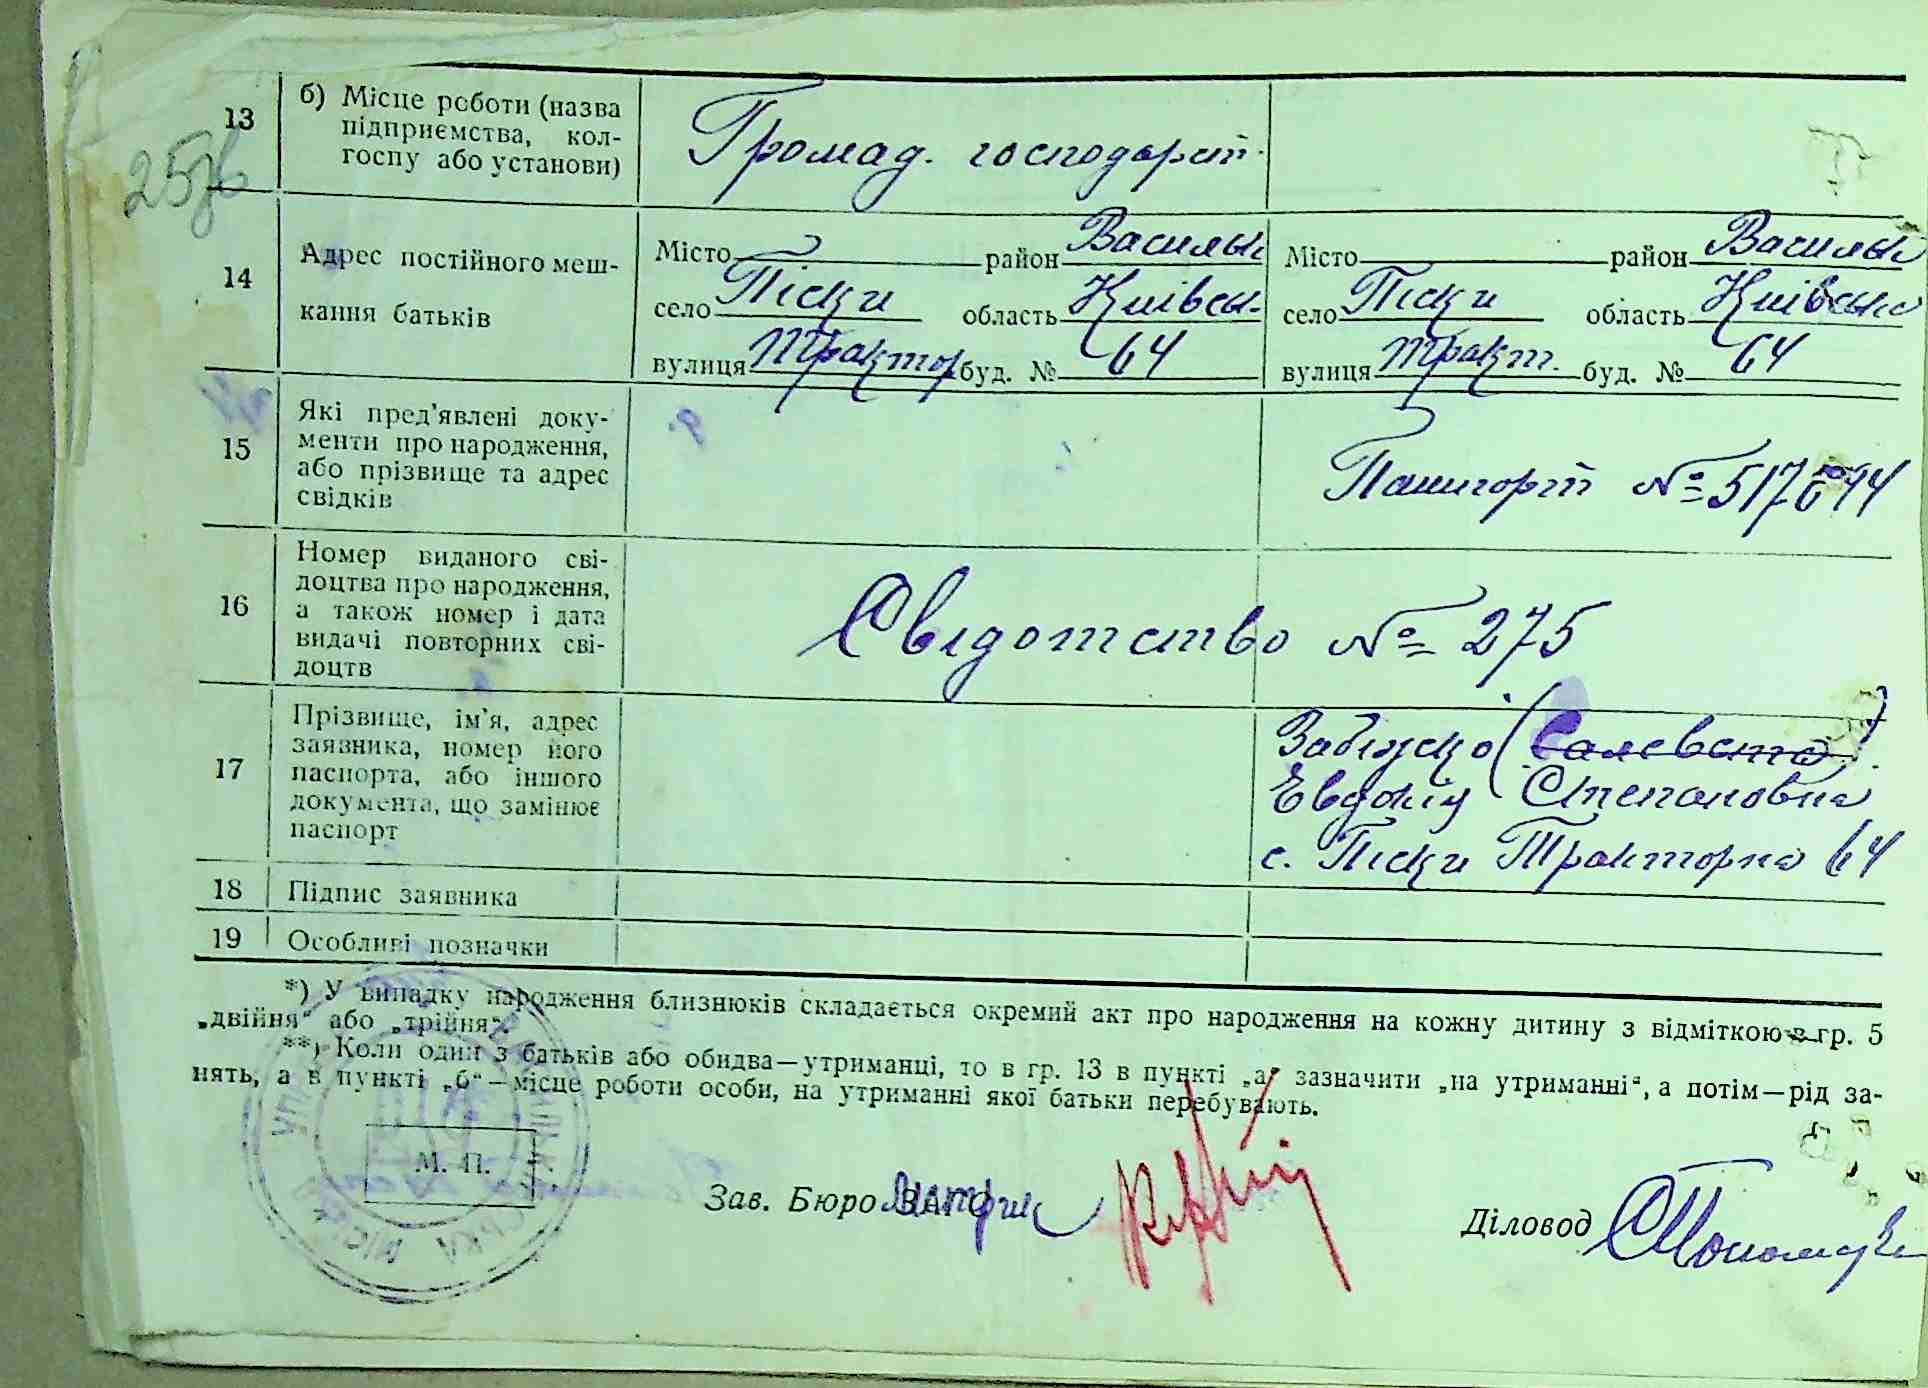 25зв
13
б) Місце роботи (назва
підприємства, кол-
госпу або установи)
Громад. господарст.
14
Адрес постійного меш-
кання батьків
Місто район Васильк
село Піски область Київсь.
вулиця Трактор буд. № 64
Місто район Васильк
село Піски область Київсько
вулиця Тракт. буд. № 64
15
Які пред'явлені доку-
менти про народження,
або прізвище та адрес
свідків
Пашпорт №
16
Номер виданого сві-
доцтва про народження,
а також номер і дата
видачі повторних сві-
доцтв
Свідотство № 275
17
Прізвище, ім'я, адрес
заявника, номер його
паспорта, або іншого
документа, що замінює
паспорт
Евдокія Степановна
с. Піски Тракторна 64
18
Підпис заявника
19
Особливі позначки
*) У випадку народження близнюків складається окремий акт про народження на кожну дитину з відміткою в гр. 5
„двійня" або „трійня".
**) Коли один з батьків або обидва—утриманці, то в гр. 13 в пункті „а" зазначити „на утриманні", а потім—рід за-
нять, а в пункті „б"—місце роботи особи, на утриманні якої батьки перебувають.
М. П.
Зав. Бюро ЗАГС
Діловод